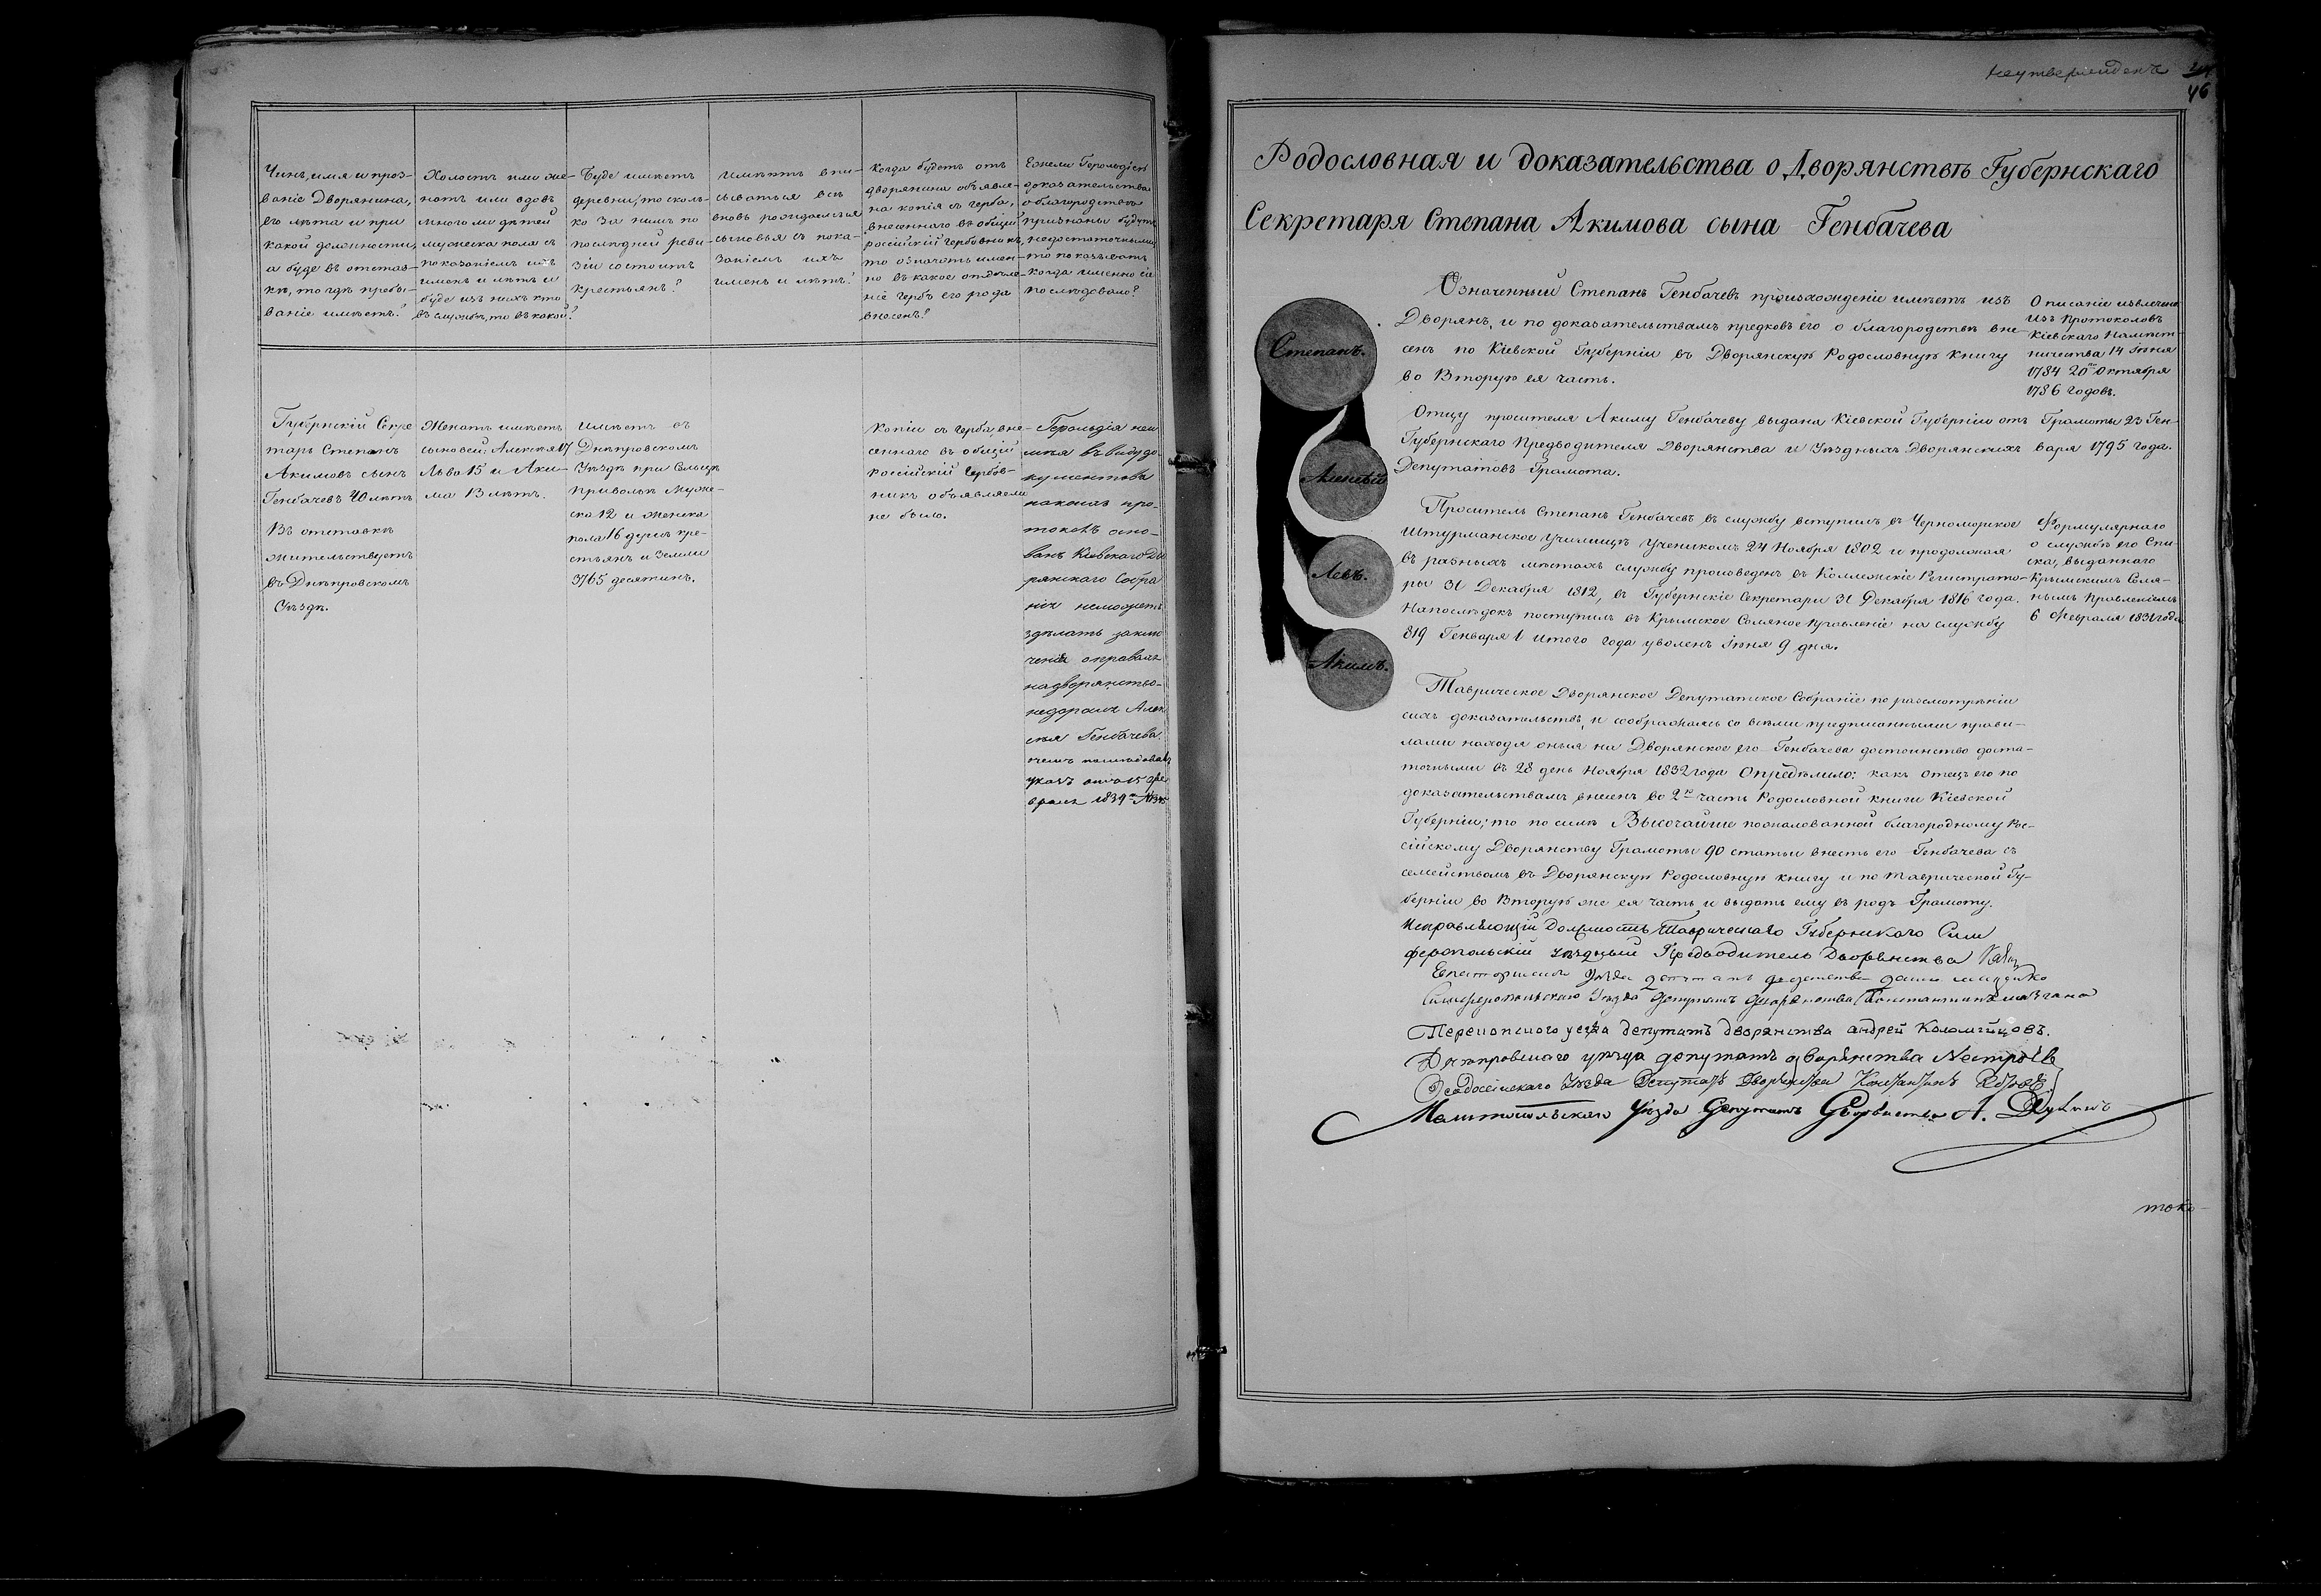 Чинъ, имя и проз-
ваніе Дворянина,
его лѣта и при
какой должности,
а буде въ отстав-
кѣ, то гдѣ пребы-
ваніе имѣетъ?
Холостъ или же-
натъ или вдовъ
много ли дѣтей
мужеска пола съ
показаніемъ ихъ
имянъ и лѣтъ и
буде изъ нихъ кто
въ службѣ, то въ какой?
Буде имѣетъ
деревни, то сколь-
ко за нимъ по
послѣдней реви-
зіи состоитъ
крестьянъ?
Имѣютъ впи-
сываться всѣ
вновь рождаемыя
сыновья съ пока-
заніемъ ихъ
имянъ и лѣтъ.
Когда будетъ отъ
дворянина объявле-
на копія съ герба,
внесеннаго въ общій
россійскій гербовникъ,
то означать имен-
но въ какое отдѣле-
ніе гербъ его рода
внесенъ?
Ежели Герольдіею
доказательства
о благородствѣ
признаны будутъ
недостаточными,
то показывать
когда именно сіе
послѣдовало?
Губернскій Секре
тарь Степанъ
Акимовъ сынъ
Генбачевъ 40 лѣтъ
Въ отставкѣ
жительствуетъ
въ Днѣпровскомъ
Уѣздѣ.
Женатъ имѣетъ
сыновей: Алексѣя 17
Льва 15 и Аки-
ма 13 лѣтъ.
Имѣетъ въ
Днѣпровскомъ
Уѣздѣ при Сельцѣ
Привольѣ муже-
ска 12 и женска
пола 16 душъ кре-
стьянъ и земли
3765 десятинъ.
Копіи съ герба, вне-
сеннаго въ общій
россійскій Гербов-
никъ объявляемо
не было.
Герольдія неи
мѣя въ виду до
кументовъ
на коихъ про-
токолъ осно-
ванъ Кіевскаго Дво
рянскаго Собра
нія неможетъ
здѣлать заклю
ченія оправахъ
на дворянство
недоросля Алек
сѣя Генбачева
о чемъ послѣдовалъ
указъ отъ 15 Фев
раля 1839
неутвержденъ
46
Родословная и доказательства о Дворянствѣ Губернскаго
Секретаря Степана Акимова сына Генбачева
Степанъ.
Алексѣй
Левъ.
Акимъ.
Означенный Степанъ Генбачевъ происхожденіе имѣетъ изъ
Дворянъ, и по доказательствамъ предковъ его о благородствѣ вне-
сенъ по Кіевской Губерніи въ Дворянскую Родословную Книгу
во Вторую ея часть.
Описаніе извлечено
изъ протоколовъ
Кіевскаго Намѣст-
ничества 14 Іюня
1784 20го Октября
1786 годовъ.
Отцу просителя Акиму Генбачеву выдана Кіевской Губерніи отъ
Губернскаго Предводителя Дворянства и Уѣздныхъ Дворянскихъ
Депутатовъ Грамота.
Грамоты 23 Ген-
варя 1795 года.
Проситель Степанъ Генбачевъ въ службу вступилъ въ Черноморское
Штурманское Училище Ученикомъ 24 Ноября 1802 и продолжая
въ разныхъ мѣстахъ службу произведенъ въ Коллежскіе Регистрато-
ры 31 Декабря 1812, въ Губернскіе Секретари 31 Декабря 1816 года.
Напослѣдокъ поступилъ въ Крымское Соляное правленіе на службу
819 Генваря 1 итого года уволенъ Іюня 9 дня.
Формулярнаго
о службѣ его Спи-
ска, выданнаго
Крымскимъ Соля-
нымъ Правленіемъ
6 Февраля 1831 года
Таврическое Дворянское Депутатское Собраніе по разсмотрѣніи
сихъ доказательствъ, и соображаясь со всѣми предписанными прави-
лами находя оныя на Дворянское его Генбачева достоинство доста-
точными въ 28 день Ноября 1832 года Опредѣлило: какъ отецъ его по
доказательствамъ внесенъ во 2ю часть Родословной книги Кіевской
Губерніи; то по силѣ Высочайше пожалованной благородному Рос-
сійскому Дворянству Грамоты 90 статьи внесть его Генбачева съ
семействомъ въ Дворянскую Родословную книгу и по Таврической Гу-
берніи во Вторую же ея часть и выдать ему въ родъ Грамоту.
Исправляющій Должность Таврическаго Губернскаго Сим
феропольскій уѣздный Предводитель Дворянства
Евпаторійскаго Уѣзда депутатъ
Симферопольскаго Уѣзда Депутатъ Дворянства Константинъ
Перекопского уезда депутатъ дворянства андрей Коломійцовъ.
Днѣпровскаго уѣзда депутатъ дворянства Нестроевъ
Феодосійскаго Уѣзда Депутатъ Дворянства
Мелитопольскаго Уѣзда Депутатъ Дворянства А.
токо-